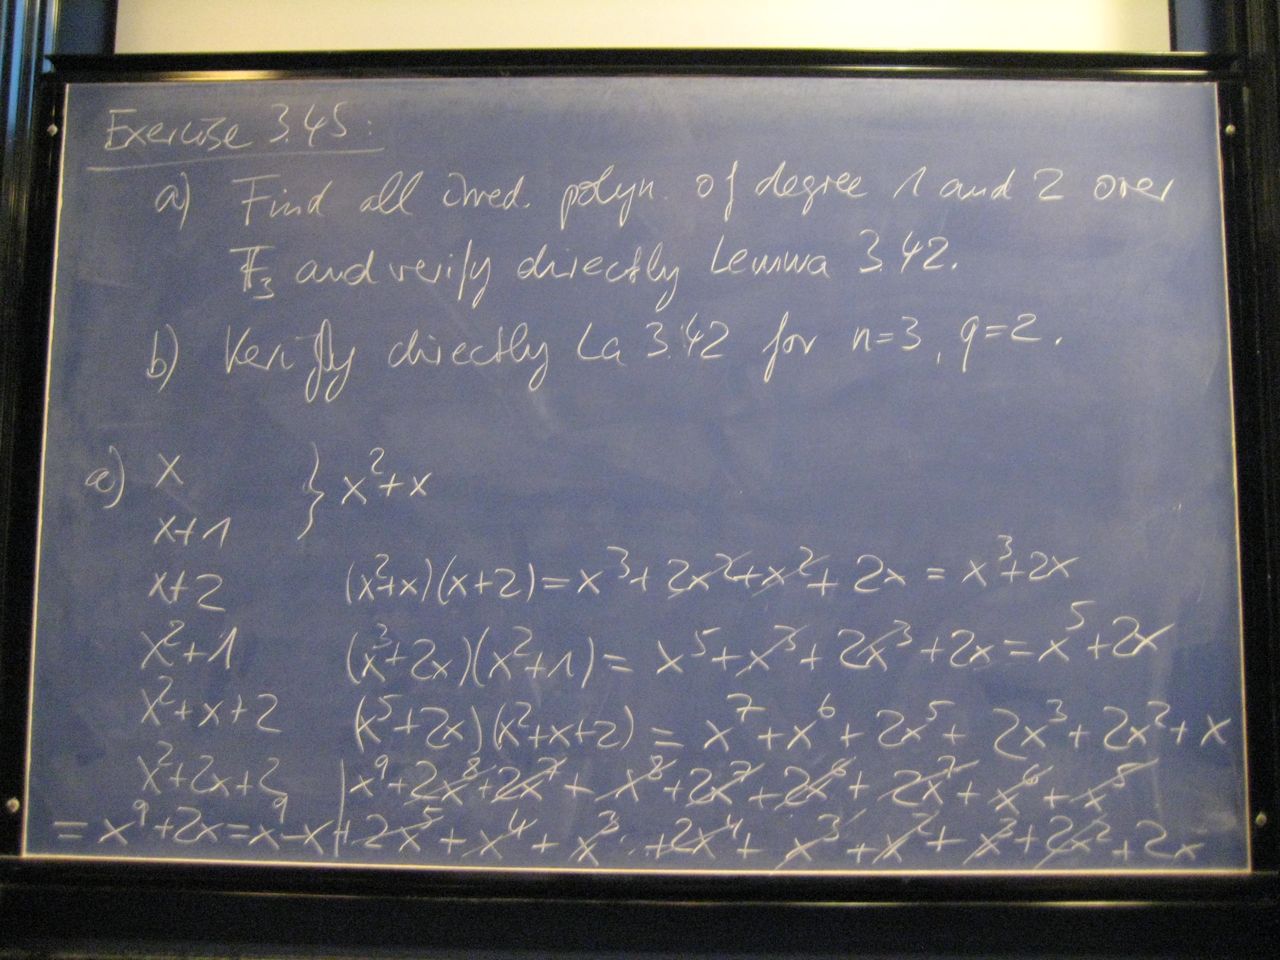 Exercise 3.45:
a) Find all irred. polyn. of degree 1 and 2 over
F₃ and verify directly Lemma 3.42.
b) Verify directly La 3.42 for n=3, q=2.
a) x } x²+x
x+1
x+2 (x²+x)(x+2) = x³+2x²+x²+2x = x³+2x
x²+1 (x³+2x)(x²+1) = x⁵+x³+2x³+2x = x⁵+2x
x²+x+2 (x⁵+2x)(x²+x+2) = x⁷+x⁶+2x⁵+2x³+2x²+x
x²+2x+2 | x⁹+2x⁸+2x⁷+x⁸+2x⁷+2x⁶+2x⁷+x⁶+x⁵
= x⁹+2x = x⁹-x | +2x⁵+x⁴+x³+2x⁴+x³+x²+x³+2x²+2x